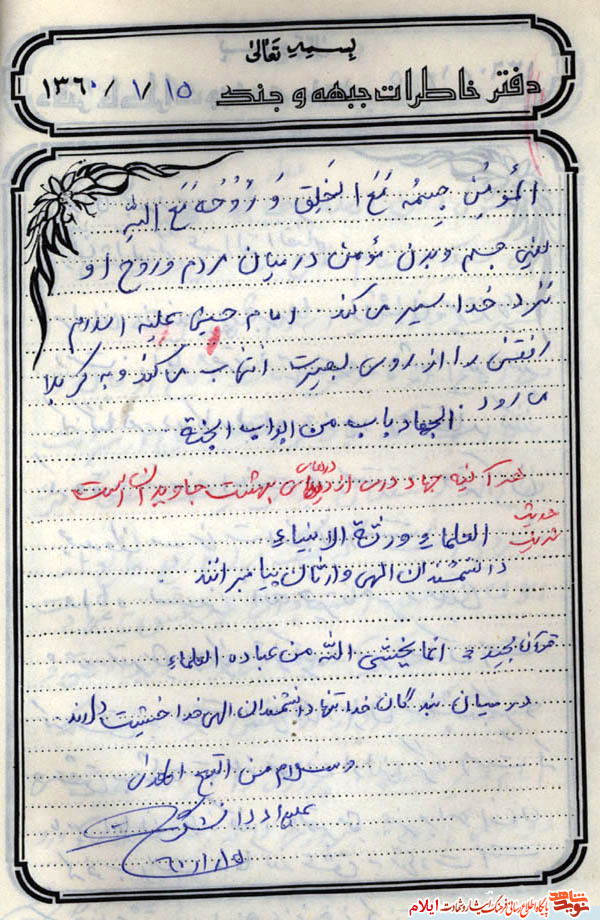 بسمه تعالی
دفتر خاطرات جبهه و جنگ ۱۳۶۰/۱/۱۵
المُؤمُنِ جِسمُه مَعَ الخَلِق وَ رُوُحُه مَعَ اللهِ
یعنی جسم و بدن مؤمن در میان مردم و روح او
نزد خدا سیر می کند امام حسین علیه السلام
رفتنی را از روی بصیرت انتخاب می کند و به کربلا
می رود الجهاد باب من ابواب الجنة
هر آئینه جهاد دری از درهای بهشت جاویدان است
حدیث شریف
العلماء ورثة الانبیاء
دانشمندان الهی وارثان پیامبرانند
قرآن مجید انما یخشی الله من عباده العلماء
در میان بندگان خدا تنها دانشمندان الهی خدا خشیت دارند
وسلام من التبع الهدی
۶۰/۱/۱۵
پایگاه اطلاع رسانی فرهنگ ایثار و شهادت ایلام
نوید شاهد